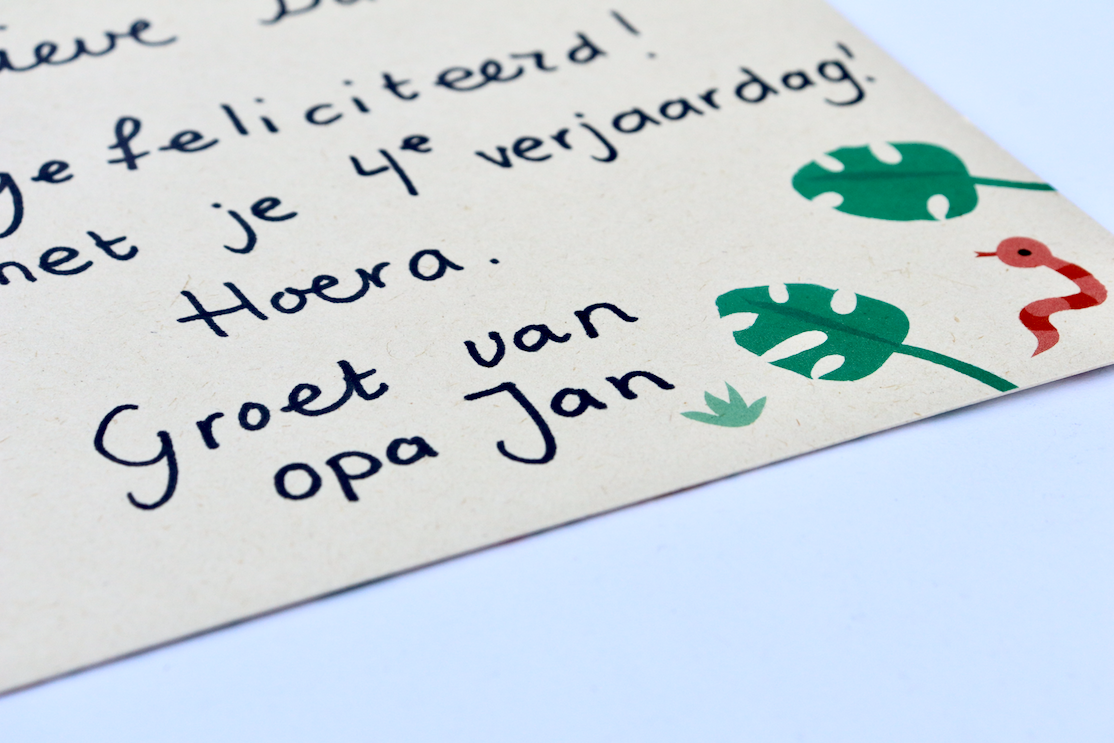 Lieve
gefeliciteerd!
met je 4e verjaardag!
Hoera.
Groet van
opa Jan